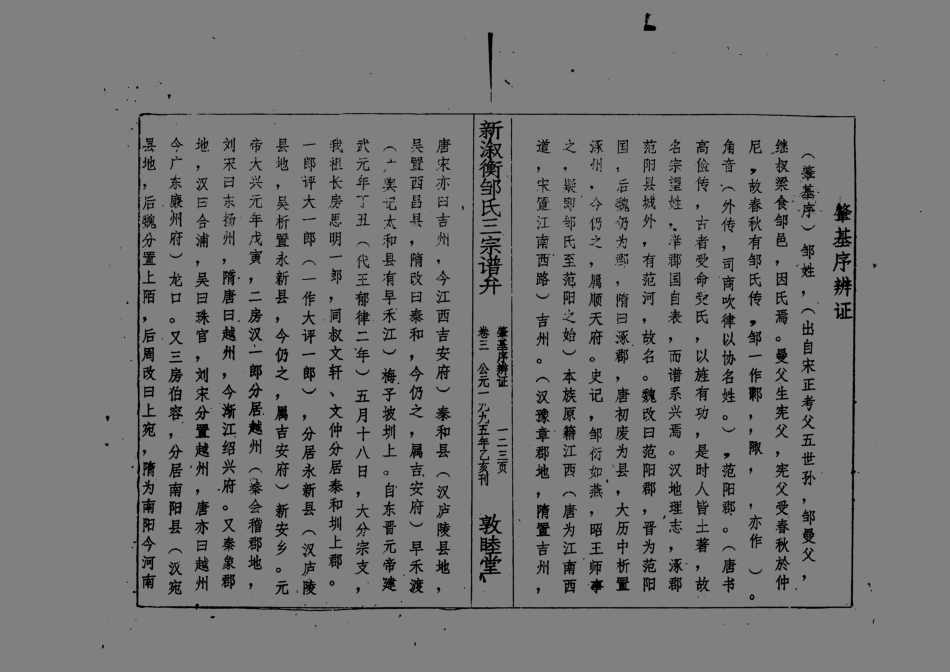 肇基序辨证
（肇基序）邹姓，（出自宋正考父五世孙，邹曼父，
继叔梁食邹邑，因氏焉。曼父生宪父，宪父受春秋於仲
尼，故春秋有邹氏传，邹一作鄹，陬，　，亦作　）。
角音（外传，司商吹律以协名姓。），范阳郡。（唐书
高俭传，古者受命受氏，以旌有功，是时人皆土著，故
名宗望姓，举郡国自表，而谱系兴焉。汉地理志，涿郡
范阳县城外，有范河，故名。魏改曰范阳郡，晋为范阳
国，后魏仍为郡，隋曰涿郡，唐初废为县，大历中析置
涿州，今仍之，属顺天府。史记，邹衍如燕，昭王师事
之，疑即邹氏至范阳之始）本族原籍江西（唐为江南西
道，宋置江南西路）吉州。（汉豫章郡地，隋置吉州，
新溆衡邹氏三宗谱弁
肇基序辨证　一二三页
卷三　公元一九九五年乙亥刊
敦睦堂
唐宋亦曰吉州，今江西吉安府）泰和县（汉庐陵县地，
吴置西昌县，隋改曰泰和，今仍之，属吉安府）早禾渡
（广舆记太和县有早禾江）梅子坡圳上。自东晋元帝建
武元年丁丑（代王郁律二年）五月十八日，大分宗支，
我祖长房思明一郎，同叔文轩、文仲分居泰和圳上郡。
一郎评大一郎（一作大评一郎），分居永新县（汉庐陵
县地，吴析置永新县，今仍之，属吉安府）新安乡。元
帝大兴元年戊寅，二房汉一郎分居越州（秦会稽郡地，
刘宋曰东扬州，隋唐曰越州，今浙江绍兴府。又秦象郡
地，汉曰合浦，吴曰珠官，刘宋分置越州，唐亦曰越州
今广东廉州府）龙口。又三房伯容，分居南阳县（汉宛
县地，后魏分置上陌，后周改曰上宛，隋为南阳今河南